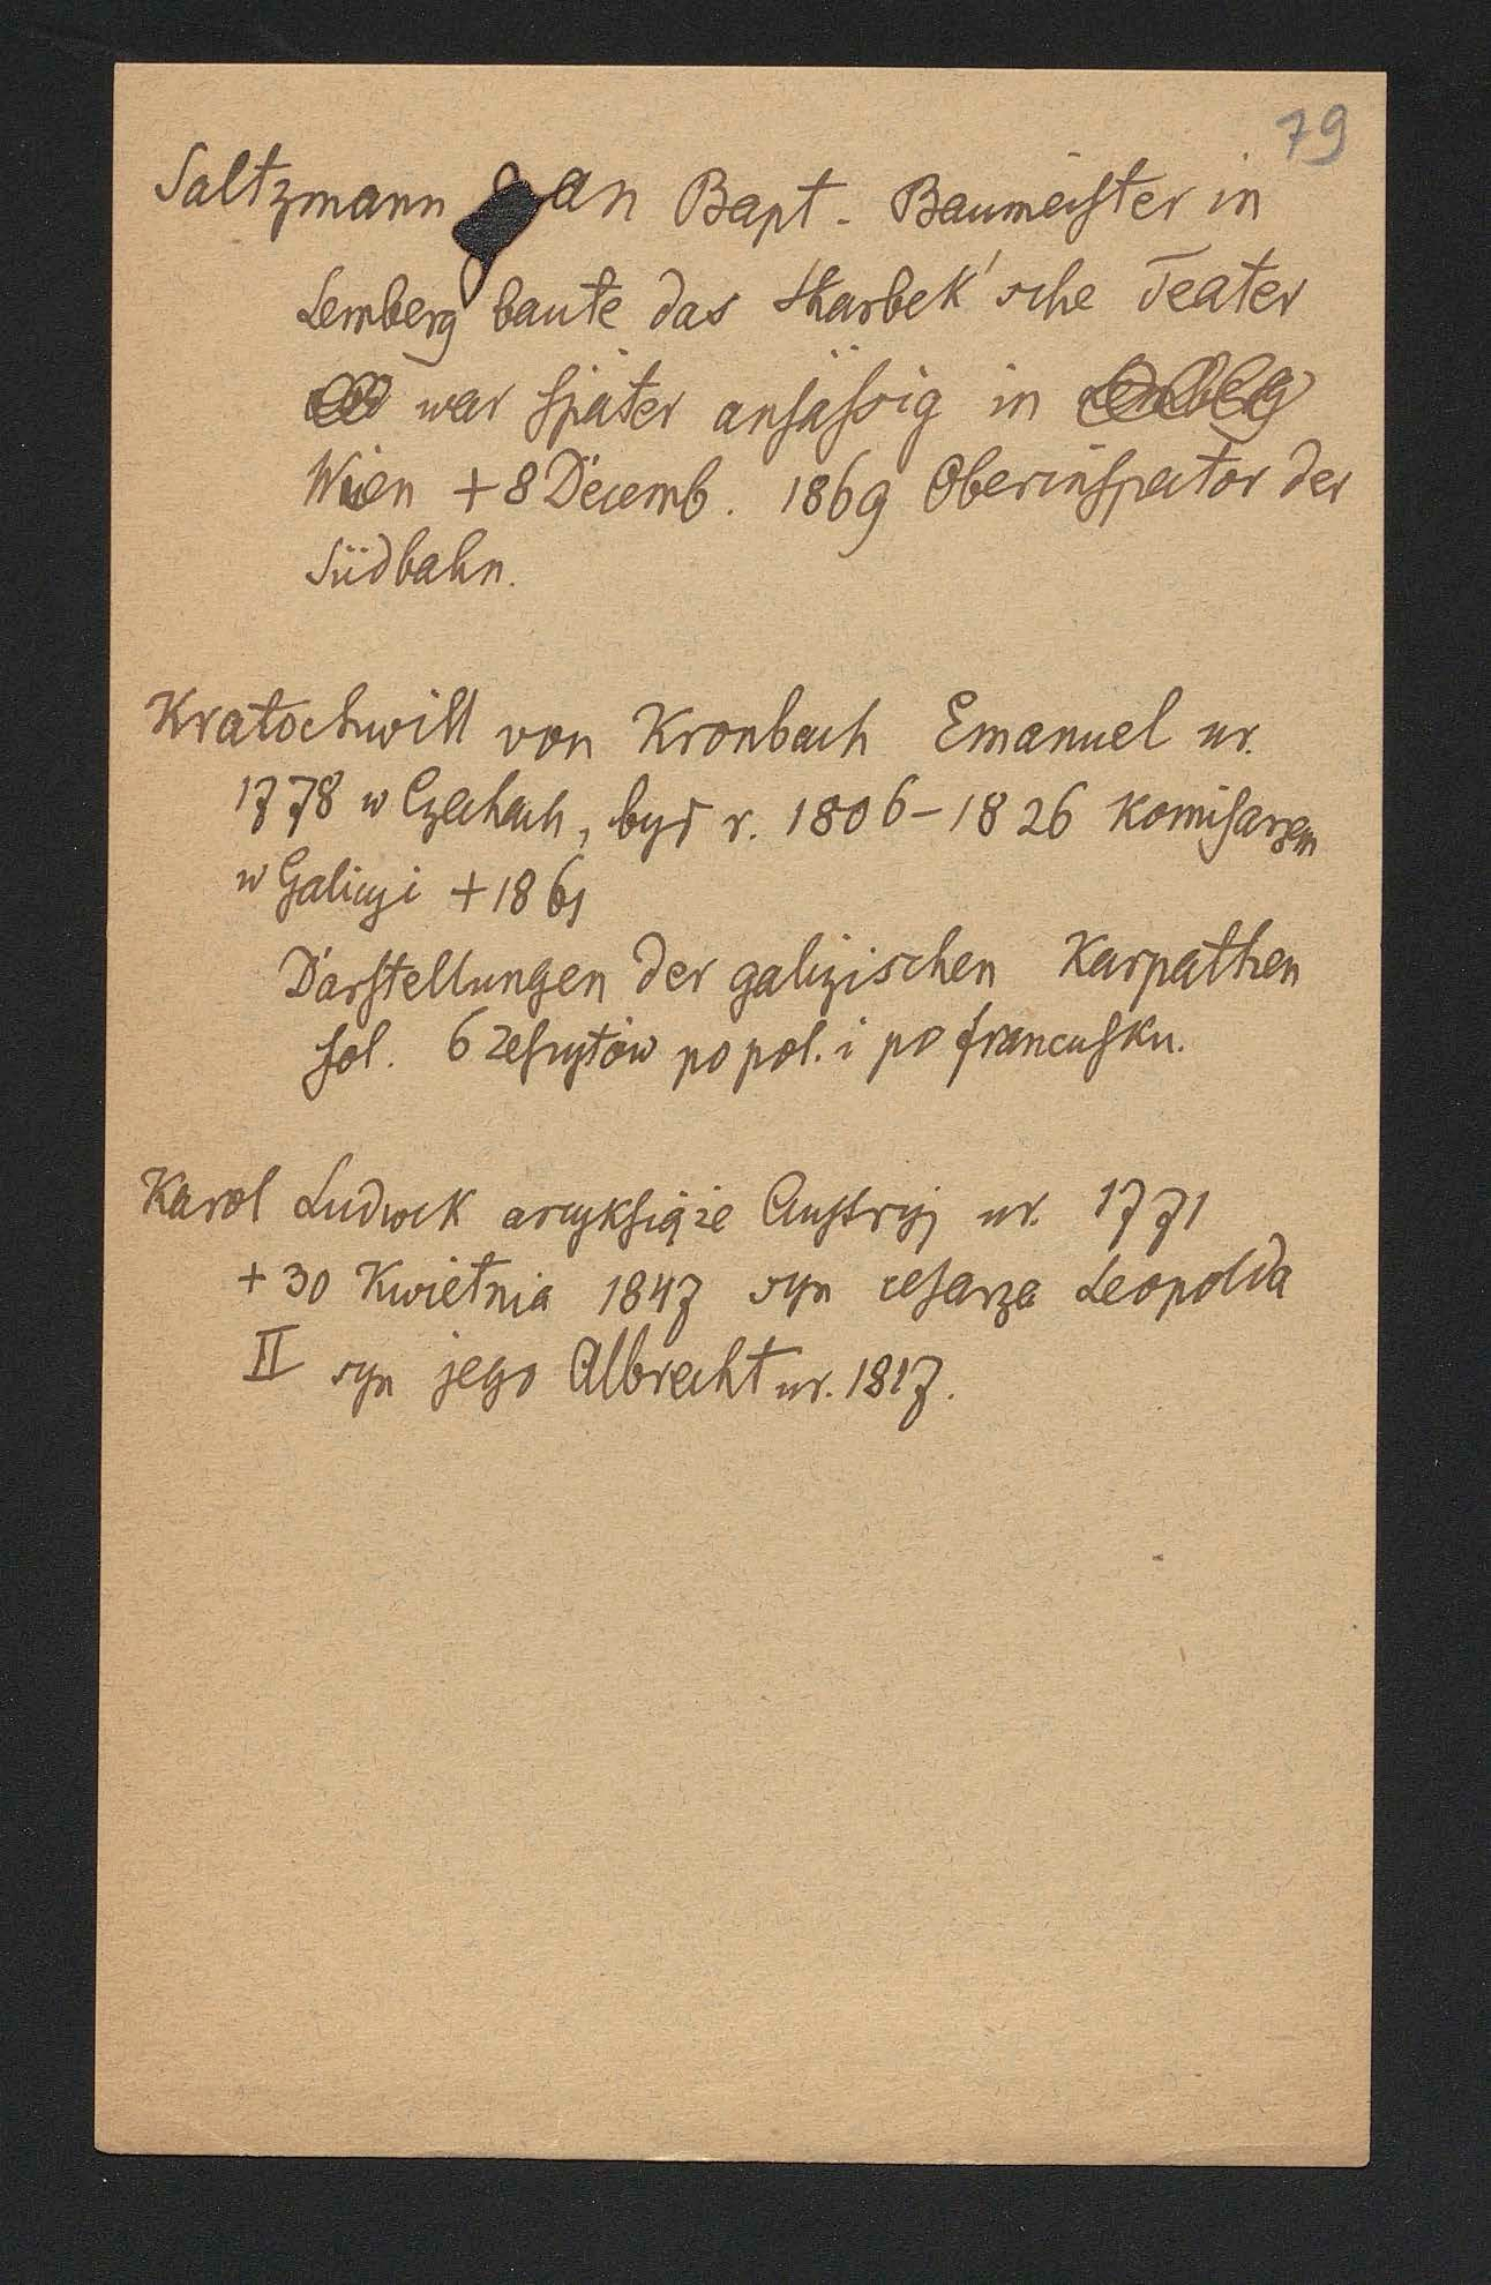 79
Saltzmann Jan Bapt. Baumeister in
Lemberg baute das Skarbek'sche Teater
war später ansässig in
Wien + 8 Decemb. 1869 Oberinspector der
Südbahn.
Kratochwill von Kronbach Emanuel ur.
1778 w Czechach, był r. 1806-1826 Komisarzem
w Galicyi + 1861
Darstellungen der galizischen Karpathen
fol. 6 zeszytów po pol. i po francusku.
Karol Ludwik arcyksiąże Austryj ur. 1771
+ 30 Kwietnia 1847 syn cesarza Leopolda
II syn jego Albrecht ur. 1817.